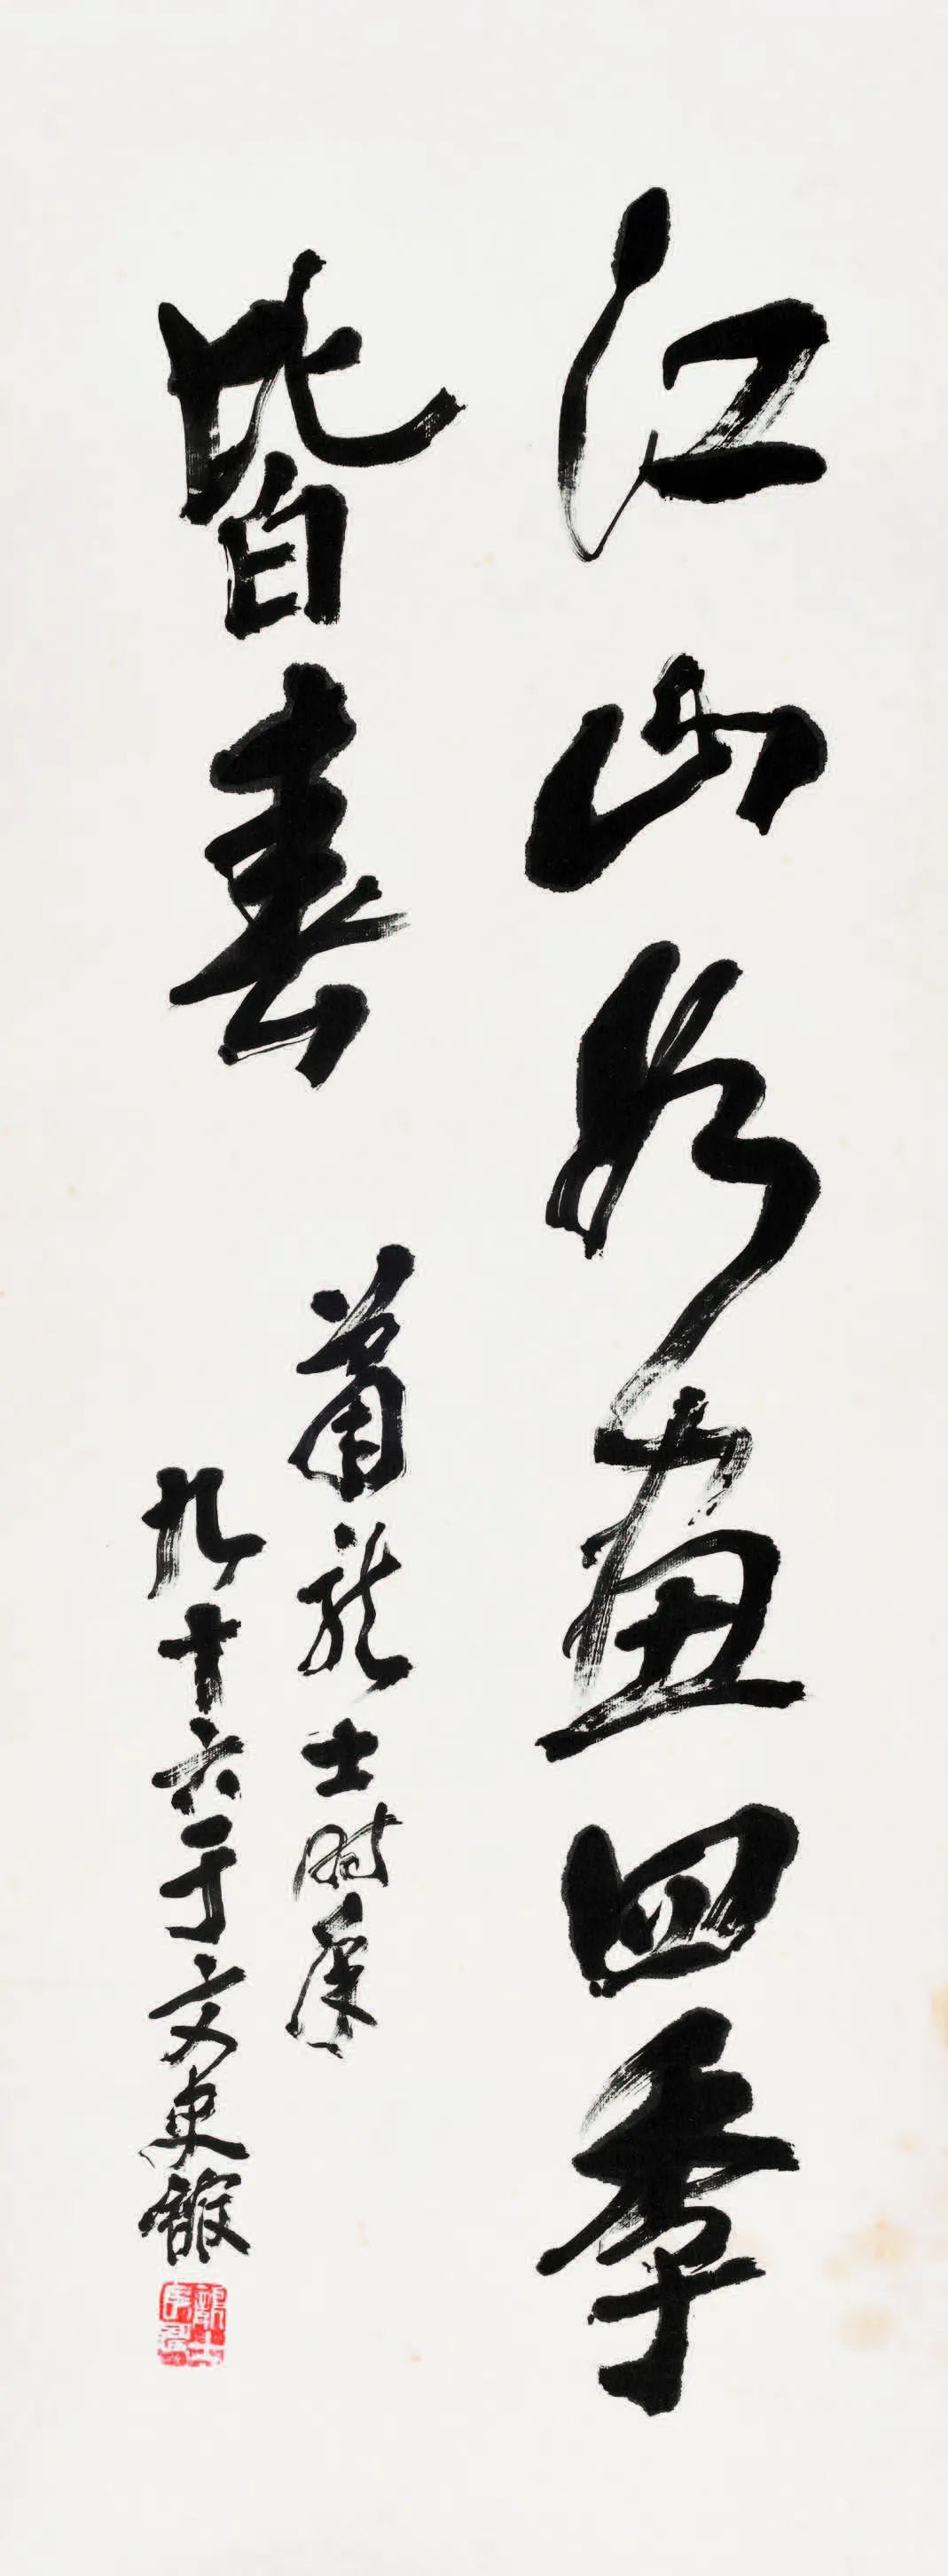 江山如画四季
皆春
萧龙士时年
九十六于文史馆